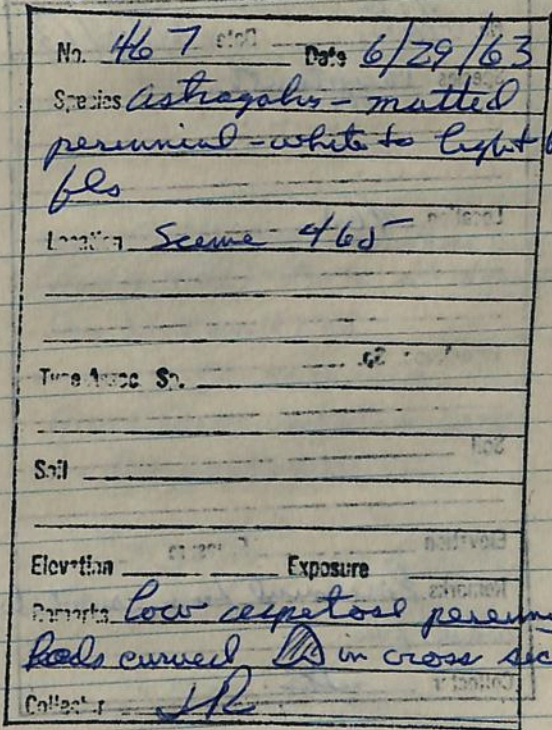 No. 467 Date 6/29/63
Species Astragalus - matted
perennial - white to light
fls
Location Same 465
Type Assoc. Sp.
Soil
Elevation Exposure
Remarks Low cespetose perenn
Pods curved in cross sec
Collector JR